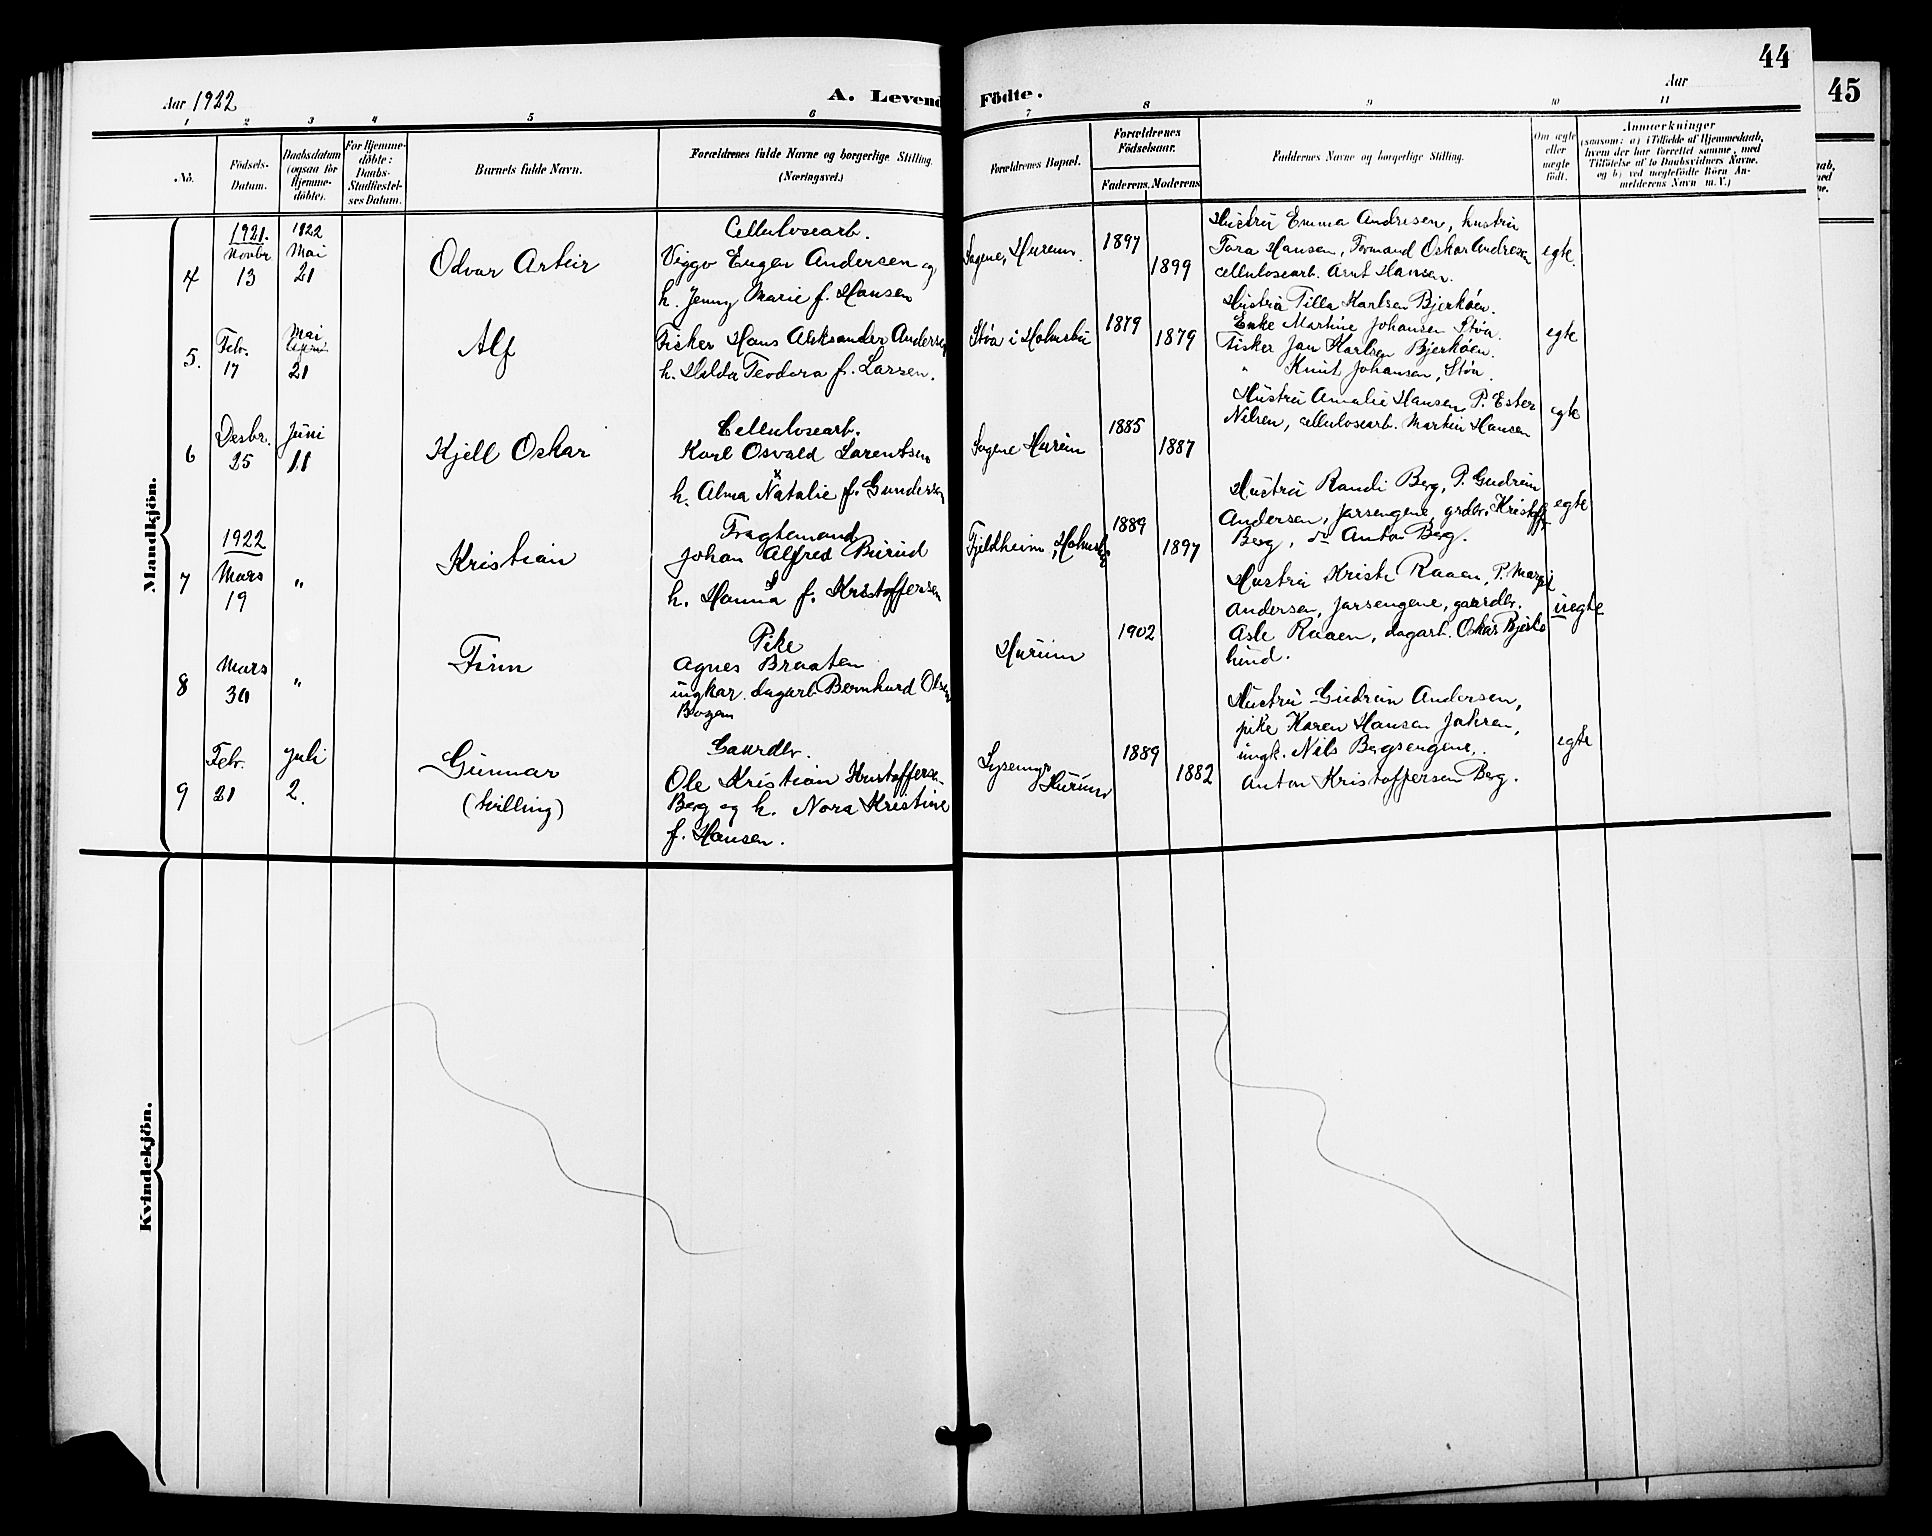 44
45
Aar 1922
A. Levend
Födte.
Aar
1 2 3 4 5 6 7 8 9 10 11
No.
Födsels-
Datum.
Daabsdatum
(ogsaa for
Hjemme-
döbte).
For Hjemme-
döbte:
Daabs-
Stadfæstel-
ses Datum.
Barnets fulde Navn.
Forældrenes fulde Navne og borgerlige Stilling.
(Næringsvei.)
Forældrenes Bopæl.
Forældrenes
Födselsaar.
Faderens. Moderens
Faddernes Navne og borgerlige Stilling.
Om ægte
eller
uægte
født.
Anmærkninger
(saasom: a) i Tilfælde af Hjemmedaab,
hvem der har forrettet samme, med
Tilföielse af to Daabsvidners Navne,
og b) ved uægtefödte Börn An-
melderens Navn m. V.)
Mandkjön.
4
1921.
Novbr
13
1922
Mai
21
Odvar Artur
Cellulosearb.
Viggo Eugen Andersen og
h. Jenny Marie f. Hansen
Sagene, Hurum.
1897
1899
Hustru Emma Andresen, hustru
Tora Hansen, Formand Oskar Andresen
cellulosearb. Arnt Hansen.
egte.
5.
Febr.
17
Mai
21
Alf
Fisker Hans Aleksander Andersen
h. Hilda Teodora f. Larsen.
Støa i Holmsbu
1879
1879
Hustru Tilla Karlsen Bjerkøen.
Enke Martine Johansen Støa.
Fisker Jan Karlsen Bjerkøen.
" Knut Johansen, Støa.
egte
6
Desbr.
25
Juni
11
Kjell Oskar
Cellulosearb.
Karl Osvald Larentsen
h. Alma Natalie f. Gundersen
Sagene Hurum
1885
1887
Hustru Amalie Hansen, P. Ester
Nilsen, cellulosearb. Martin Hansen
egte
7
1922
Mars
19
"
Kristian
Fragtemand
Johan Alfred Burud
h. Hanna f. Kristoffersen
Fjeldheim, Holmsbu
1889
1897
Hustru Randi Berg, P. Gudrun
Andersen, Jarsengene, grdbr. Kristoff
Berg, do Anton Berg.
egte
8
Mars
30
"
Finn
Pike
Agnes Braaten
ungkar. dagarb. Bernhard Olsen
Bogen
Hurum
1902
Hustru Kristi Raaen, P. Margit
Andersen, Jarsengene, gaardbr.
Asle Raaen, dagarb. Oskar Bjerke
hund.
uegte
9
Febr.
21
Juli
2.
Gunnar
(tvilling)
Gaardbr.
Ole Kristian Kristoffersen
Berg og h. Nora Kristine
f. Hansen.
Lysemyr
Hurum
1889
1882
Hustru Gudrun Andersen,
pike Karen Hansen Jahren,
ungk. Nils Bergsengene,
Anton Kristoffersen Berg.
egte
Kvindekjön.